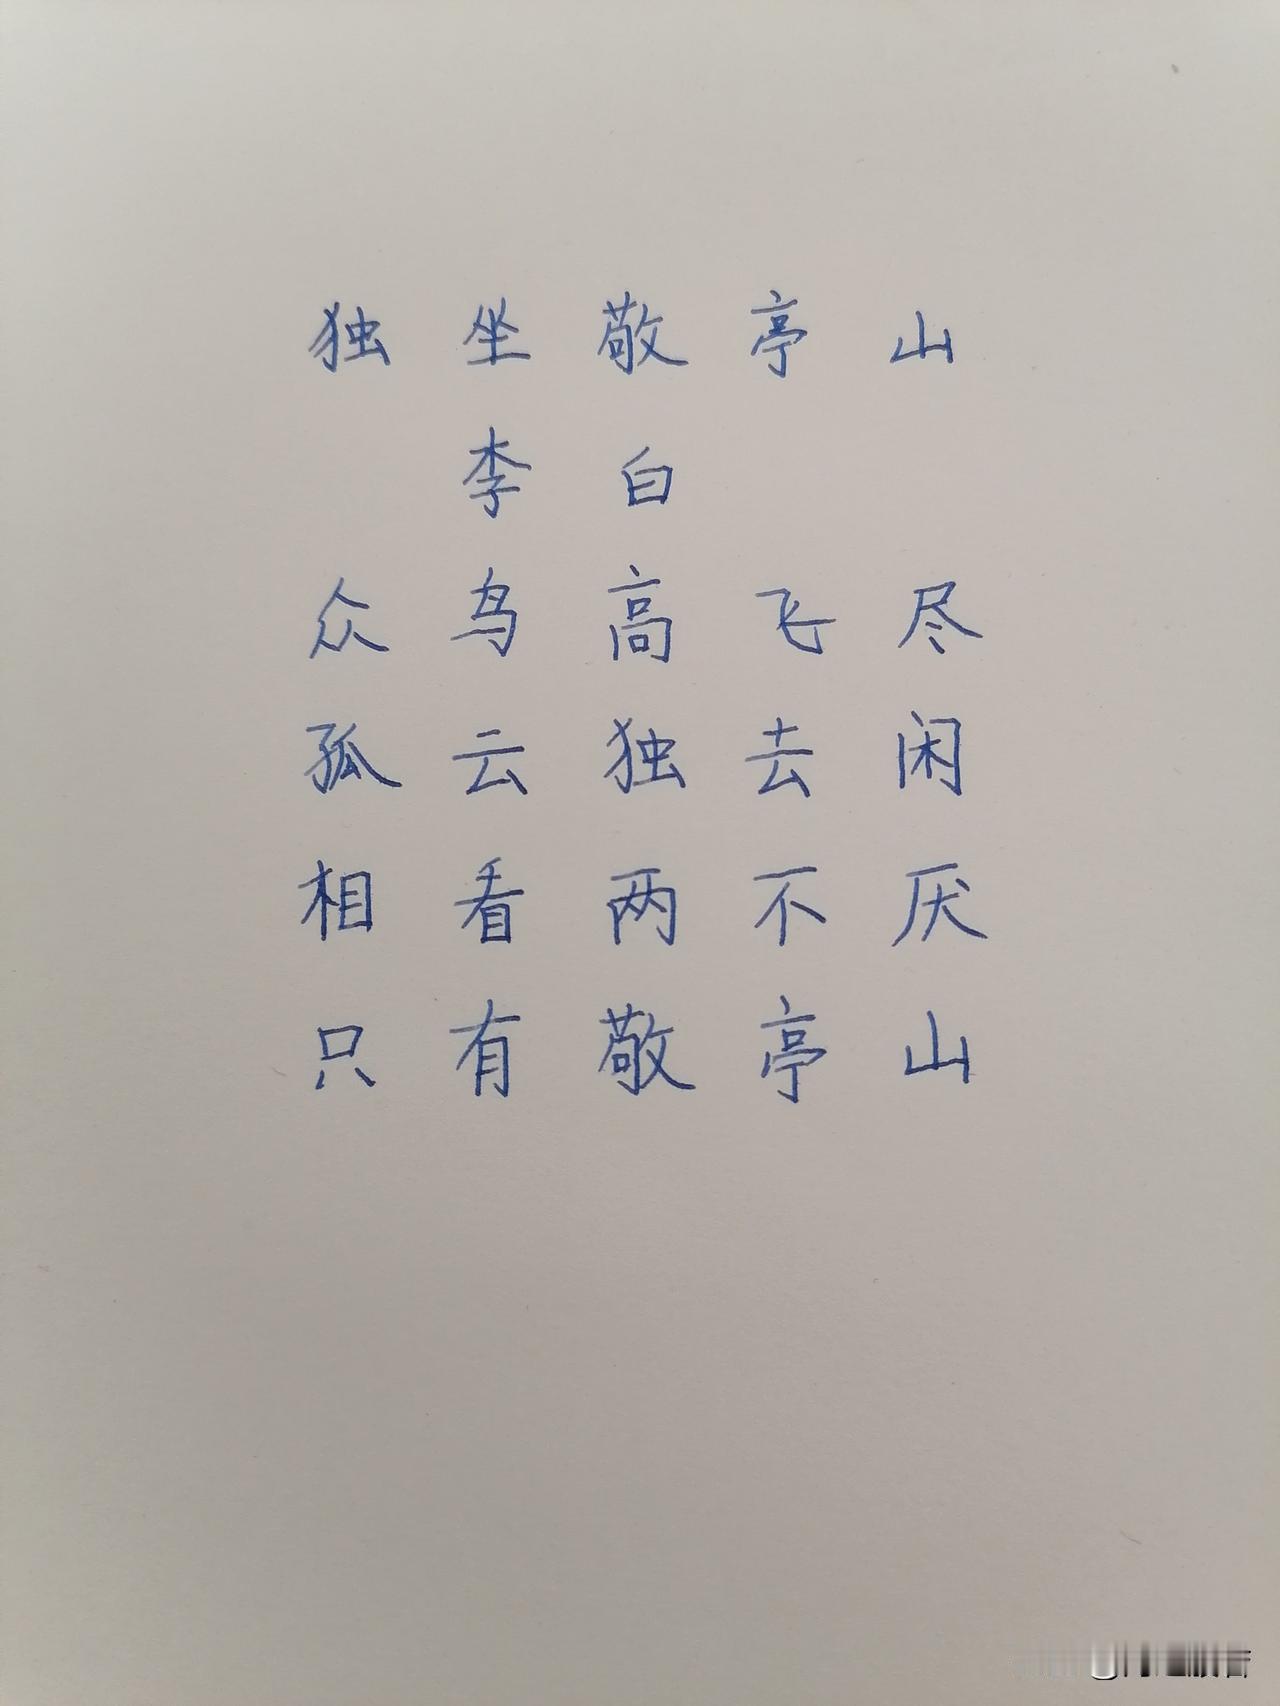 独坐敬亭山
李白
众鸟高飞尽
孤云独去闲
相看两不厌
只有敬亭山